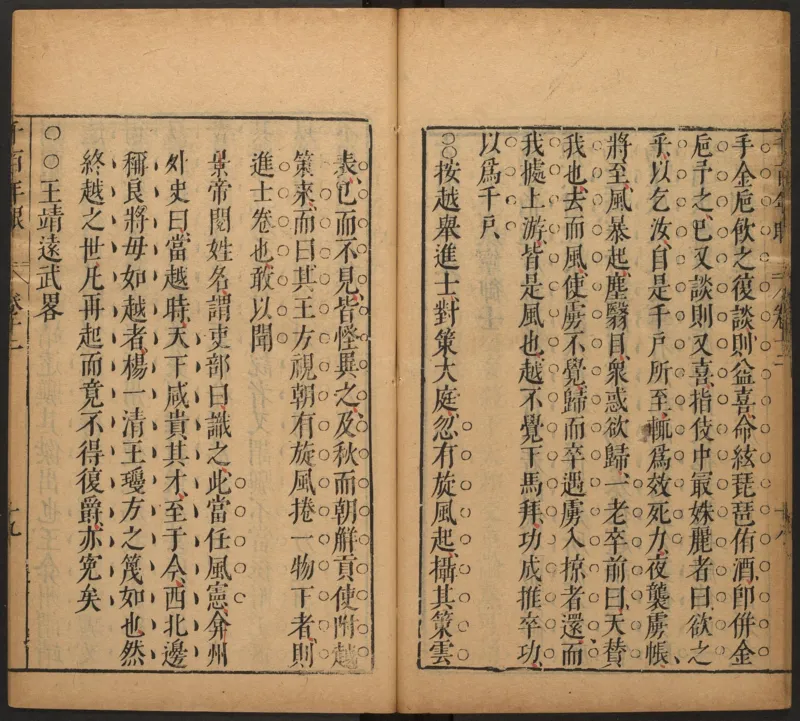 手金巵飲之復談則益喜命絃琵琶侑酒卽併金
巵予之巳又談則又喜指伎中最姝麗者曰欲之
乎以乞汝自是千戸所至輒爲效死力夜襲虜帳
將至風暴起塵翳目衆惑欲歸一老卒前曰天贊
我也去而風使虜不覺歸而卒遇虜入掠者還而
我據上游皆是風也越不覺下馬拜功成推卒功
以爲千戸
○○按越舉進士對策大庭忽有旋風起攝其策雲
表巳而不見皆怪異之及秋而朝鮮貢使附越
策來而曰其王方視朝有旋風捲一物下者則
進士卷也敢以聞
景帝閱姓名謂吏部曰識之此當任風憲弇州
外史曰當越時天下咸貴其才至于今西北邊
稱良將毋如越者楊一清王瓊方之篾如也然
終越之世凡再起而竟不得復爵亦寃矣
○○王靖遠武畧
千百年眼 卷十二 十九